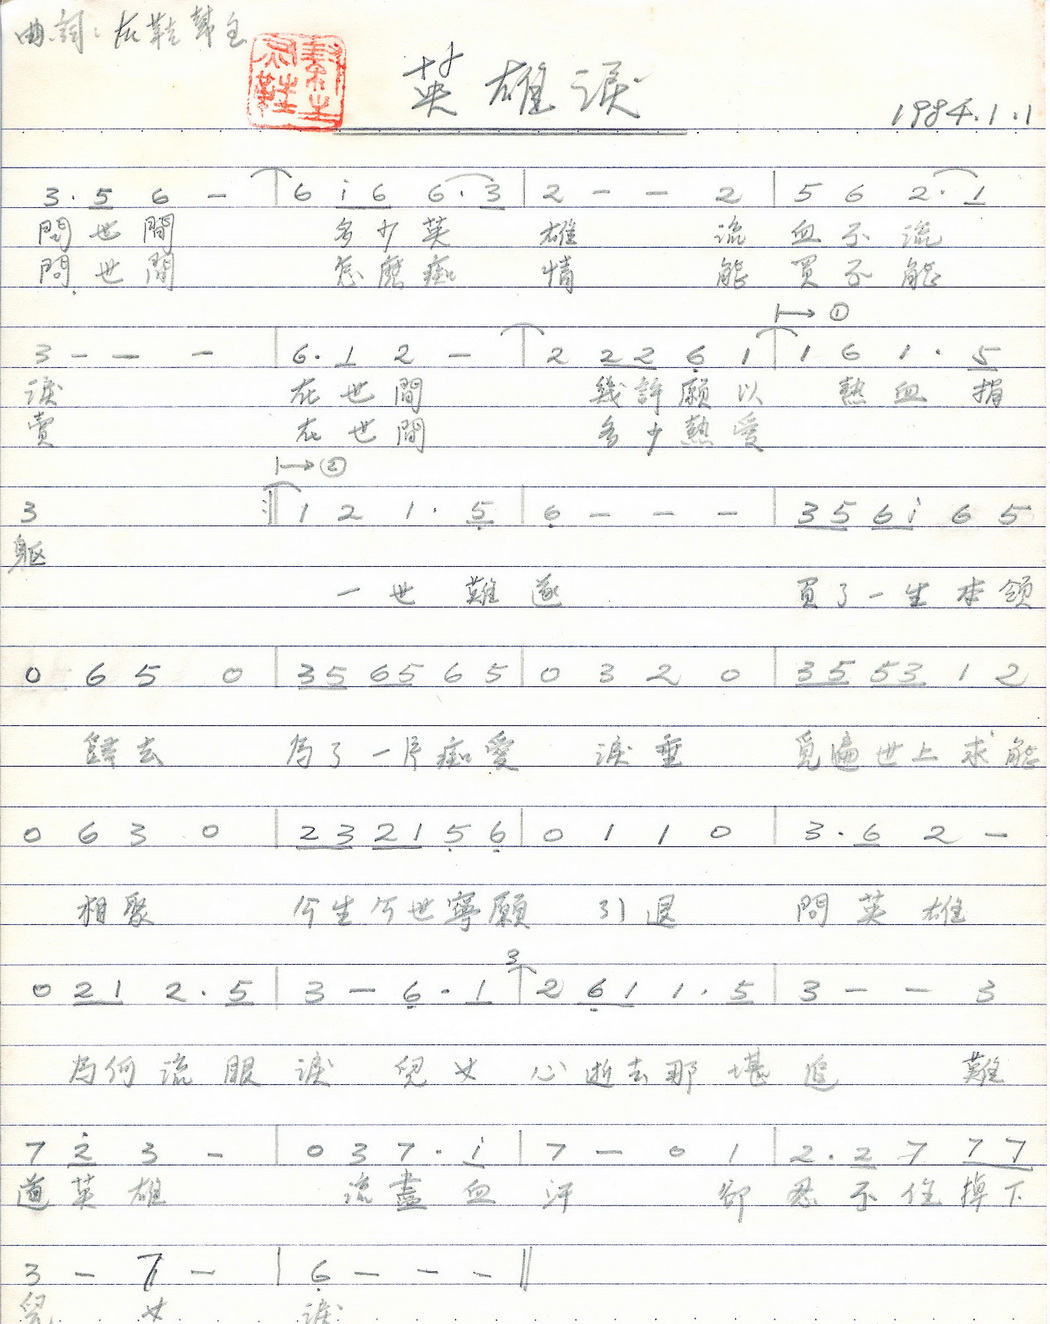 曲詞：
英雄淚
1984.1.1
3·5 6 - | 6 i6 6·3 | 2 - - 2 | 5 6 2·1
問世間 多少英 雄 流 血不流
問世間 怎麼痴 情 能 買不能
①
3 - - - | 6·1 2 - | 2 22 6 1 | 1 6 1·5
淚 在世間 幾許願以 熱血捐
賣 在世間 多少熱愛
②
3 :‖ 1 2 1·5 | 6 - - - | 35 6i 6 5
軀
一世難遂 買了一生本領
0 6 5 0 | 35 65 6 5 | 0 3 2 0 | 35 53 1 2
歸去 為了一片痴愛 淚垂 覓遍世上求能
0 6 3 0 | 23 21 5 6 | 0 1 1 0 | 3·6 2 -
相聚 今生今世寧願 引退 問英雄
3
0 21 2·5 | 3 - 6·1 | 2 61 1·5 | 3 - - 3
為何流眼 淚 兒女 心逝去那堪 追 難
7 2 3 - | 0 3 7·i | 7 - 0 1 | 2·2 7 77
道英雄 流盡血 汗 卻 忍不住掉下
3 - 7 - | 6 - - - ‖
兒 女 淚